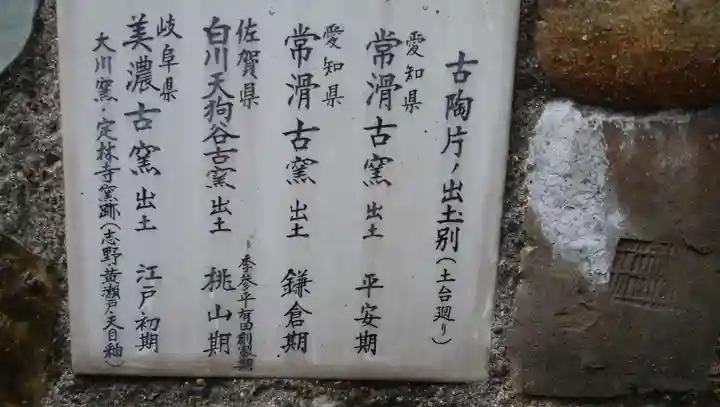 古陶片ノ出土別(土台廻り)
愛知県
常滑古窯 出土 平安期
愛知県
常滑古窯 出土 鎌倉期
佐賀県
白川天狗谷古窯 出土 桃山期
李参平有田創製期
岐阜県
美濃古窯 出土 江戸初期
大川窯・定林寺窯跡(志野黄瀬戸・天目釉)